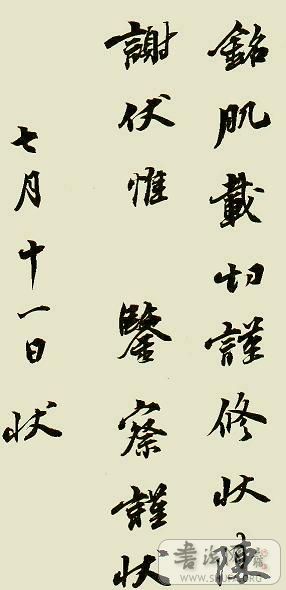 銘肌載切謹修狀陳
謝伏惟 鑒察謹狀
七月十一日 狀